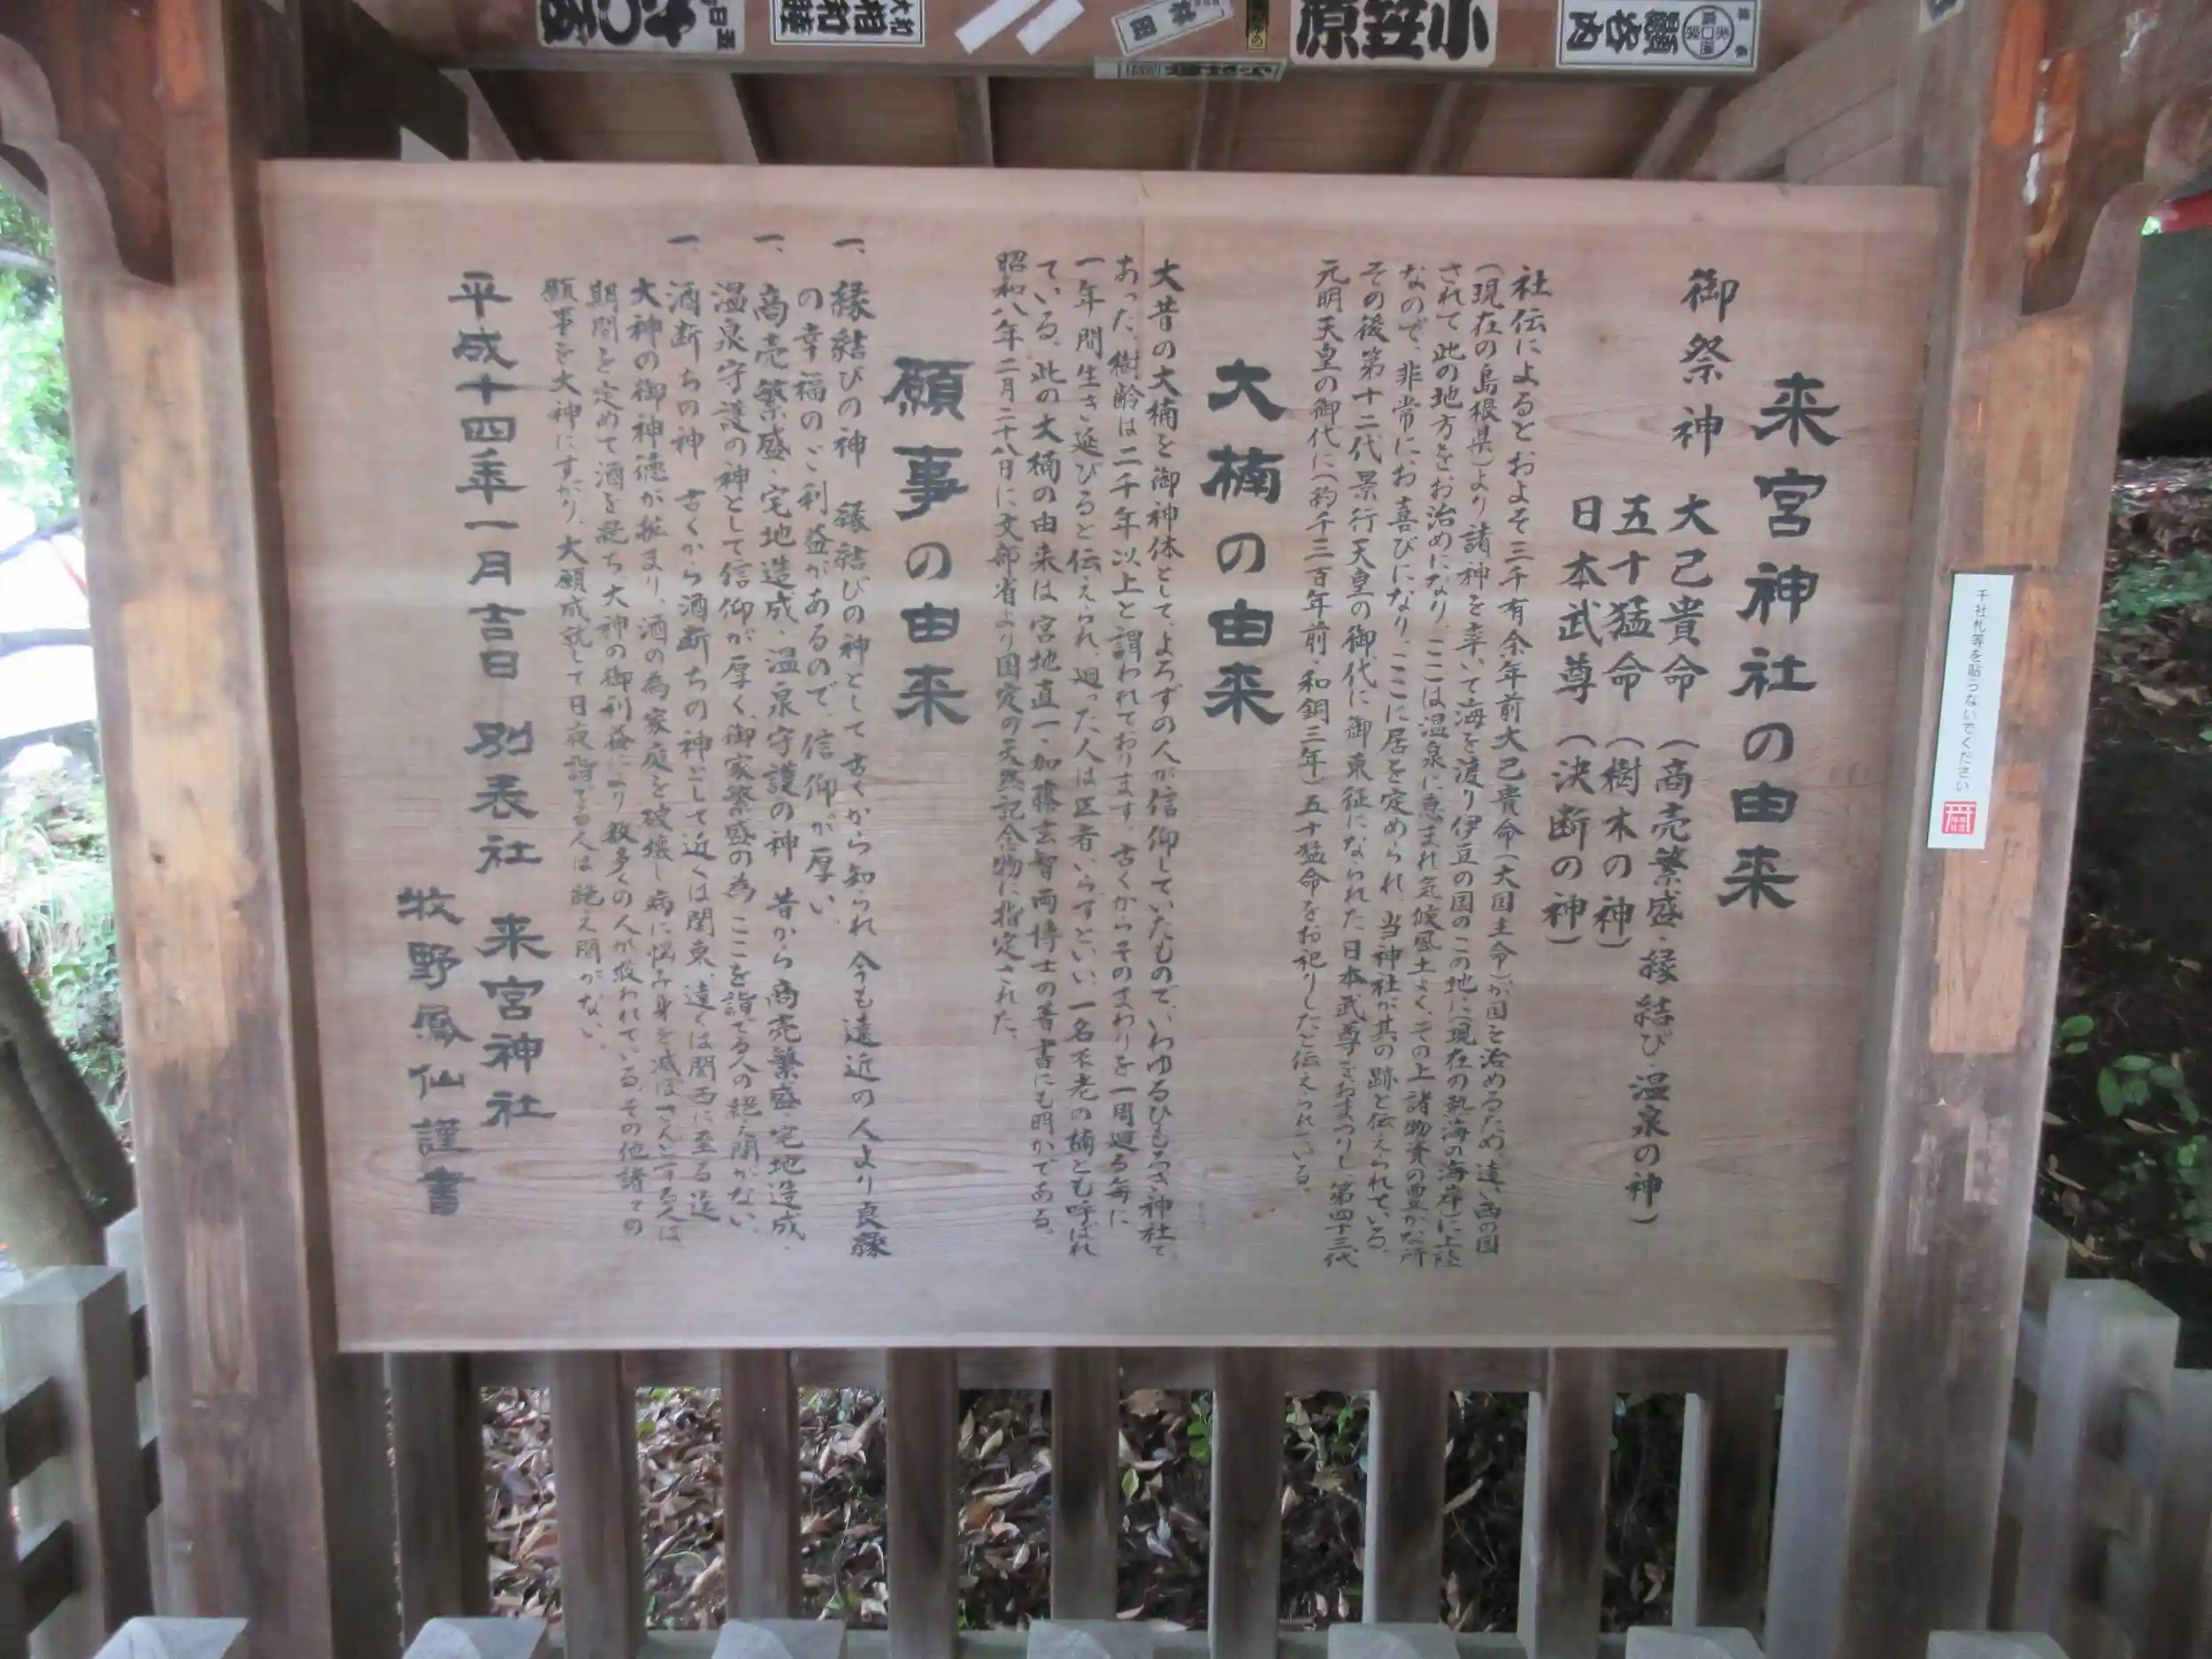 来宮神社の由来
御祭神
大己貴命(商売繁盛・縁結び・温泉の神)
五十猛命(樹木の神)
日本武尊(決断の神)
社伝によるとおよそ三千有余年前大己貴命(大国主命)が国を治めるため遠い西の国
(現在の島根県)より諸神を率いて海を渡り伊豆の国のこの地に(現在の熱海の海岸)に上陸
されて此の地方をお治めになり、ここは温泉に恵まれ気候風土よく、その上諸物資の豊かな所
なので、非常にお喜びになり、ここに居を定められ、当神社が其の跡と伝えられている。
その後第十二代景行天皇の御代に御東征になられた日本武尊をおまつりし第四十三代
元明天皇の御代に(約千三百年前・和銅三年)五十猛命をお祀りしたと伝えられている。
大楠の由来
大昔の大楠を御神体として、よろずの人が信仰していたもので、いわゆるひもろぎ神社で
あった、樹齢は二千年以上と謂われております。古くからそのまわりを一周廻る毎に
一年間生き延びると伝えられ、廻った人は医者いらずといい、一名不老の楠とも呼ばれ
ている。此の大楠の由来は宮地直一・加藤玄智両博士の著書にも明かである。
昭和八年二月二十八日に文部省より国定の天然記念物に指定された。
願事の由来
一、縁結びの神 縁結びの神として古くから知られ今も遠近の人より良縁
の幸福のご利益があるので、信仰が厚い。
一、商売繁盛・宅地造成・温泉守護の神 昔から商売繁盛・宅地造成・
温泉守護の神として信仰が厚く、御家繁盛の為ここを詣でる人の絶え間がない。
一、酒断ちの神 古くから酒断ちの神として近くは関東、遠くは関西に至る迄
大神の御神徳が拡まり、酒の為家庭を破壊し病に悩み身を滅ぼさんとする人は
期間を定めて酒を絶ち、大神の御利益により数多くの人が救われている。その他諸ての
願事を大神にすがり、大願成就して日夜詣でる人は絶え間がない。
平成十四年一月吉日 別表社 来宮神社
牧野鳳仙謹書
千社札等を貼らないでください
小笠原
林田
大和
相和睦